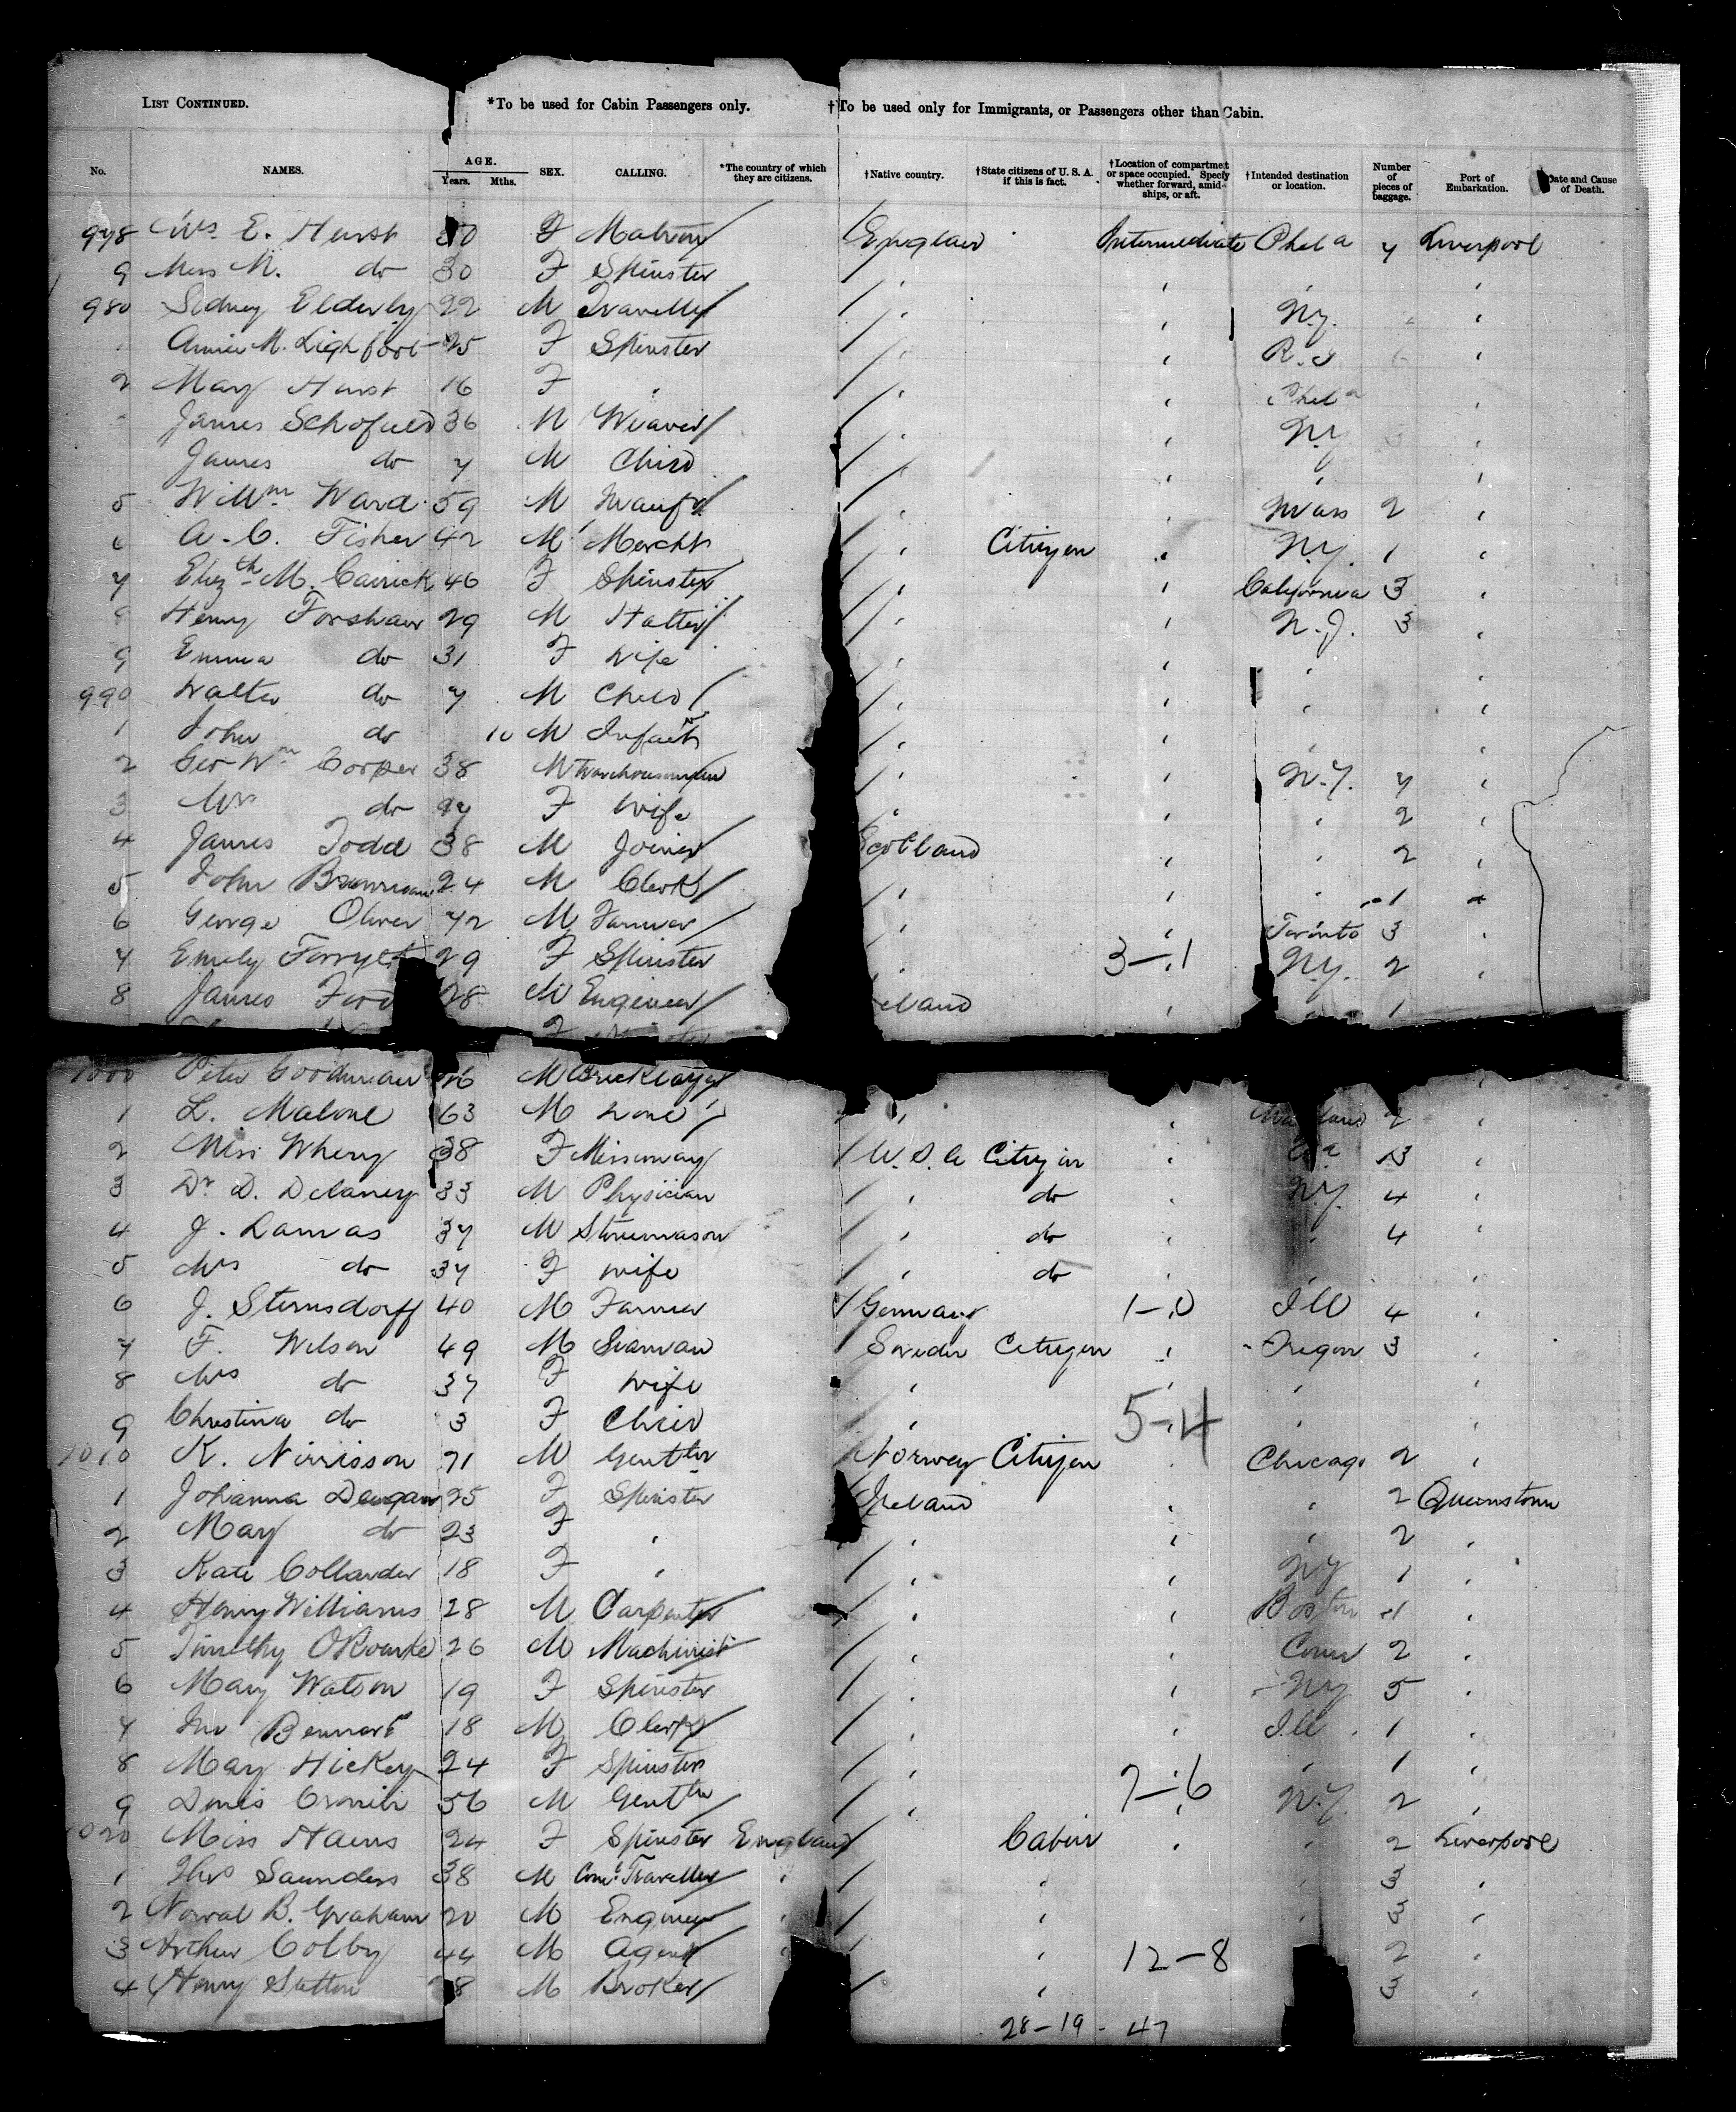 LIST CONTINUED. *To be used for Cabin Passengers only. †To be used only for Immigrants, or Passengers other than Cabin.
No. NAMES. AGE. Years. Mths. SEX. CALLING. *The country of which they are citizens. †Native country. †State citizens of U. S. A. if this is fact. †Location of compartment or space occupied. Specify whether forward, amidships, or aft. †Intended destination or location. Number of pieces of baggage. Port of Embarkation. Date and Cause of Death.
978 Mrs E. Hurst F Matron England Intermediate Phela 7 Liverpool
9 Miss M. do 30 F Spinster " " " "
980 Sidney Elderby 22 M Traveller " " N.Y. "
Annie M. Lighfoot 25 F Spinster " " R.I "
2 Mary Hurst 16 F " " " Phela "
James Schofield 36 M Weaver " " N.Y "
James do 7 M Child " " " "
5 Willm Ward 59 M Manufr " " Mass 2 "
6 A. C. Fisher 42 M Mercht " Citizen " N.Y. 1 "
7 Elizth M. Carrick 46 F Spinster " " California 3 "
8 Henry Forshaw 29 M Hatter " " N.J. 3 "
9 Emma do 31 F Wife " " " "
990 Walter do 7 M Child " " " "
1 John do 10 M Infant " " " "
2 Geo Wm Cooper 38 M Warehouseman " " N.Y. 7 "
3 Mrs do F Wife " " " 2 "
4 James Todd 38 M Joiner Scotland " " 2 "
5 John 24 M Clerk " " " 1 "
6 George Oliver 72 M Farmer " " Toronto 3 "
7 Emily Forsyth 29 F Spinster " 3-1 N.Y. 2 "
8 James 28 M Engineer eland " " 1
1000 Peter Goodman M Bricklayer
1 L. Malone 63 M none " " 2 "
2 Miss Wherry 38 F Missionary U.S.A Citizen " 3 "
3 Dr D. Delaney 33 M Physician " do " N.Y. 4 "
4 J. Lamas 37 M Stonemason " do " " 4 "
5 Mrs do 37 F wife " do " " "
6 J. Sternsdorff 40 M Farmer Germany 1-0 Ill 4 "
7 F. Wilson 49 M Seaman Sweden Citizen " Oregon 3 "
8 Mrs do 37 F Wife " " " "
9 Christina do 3 F Child " 5-4 " "
1010 K. Nirrisson 71 M Gentln Norway Citizen " Chicago 2 "
1 Johanna Deegan 25 F Spinster Ireland " " 2 Queenstown
2 May do 23 F " " " " 2 "
3 Kate Collander 18 F " " " NY 1 "
4 Henry Williams 28 M Carpenter " " Boston 1 "
5 Timothy ORourke 26 M Machinist " " Conn 2 "
6 Mary Watson 19 F Spinster " " NY 5 "
7 Jno Bennart 18 M Clerk " " Ill 1 "
8 Mary Hickey 24 F Spinster " " " 1 "
9 Denis Cronin 56 M Gentln " 7-6 N.Y. 2 "
1020 Miss Hams 24 F Spinster England Cabin " " 2 Liverpool
1 Thos Saunders 38 M Coml Traveller " " " 3 "
2 Norval B. Graham 20 M Engineer " " " 3 "
3 Arthur Colby 44 M Agent " " 12-8 2 "
4 Henry Sutton M Broker " 3 "
28-19-47